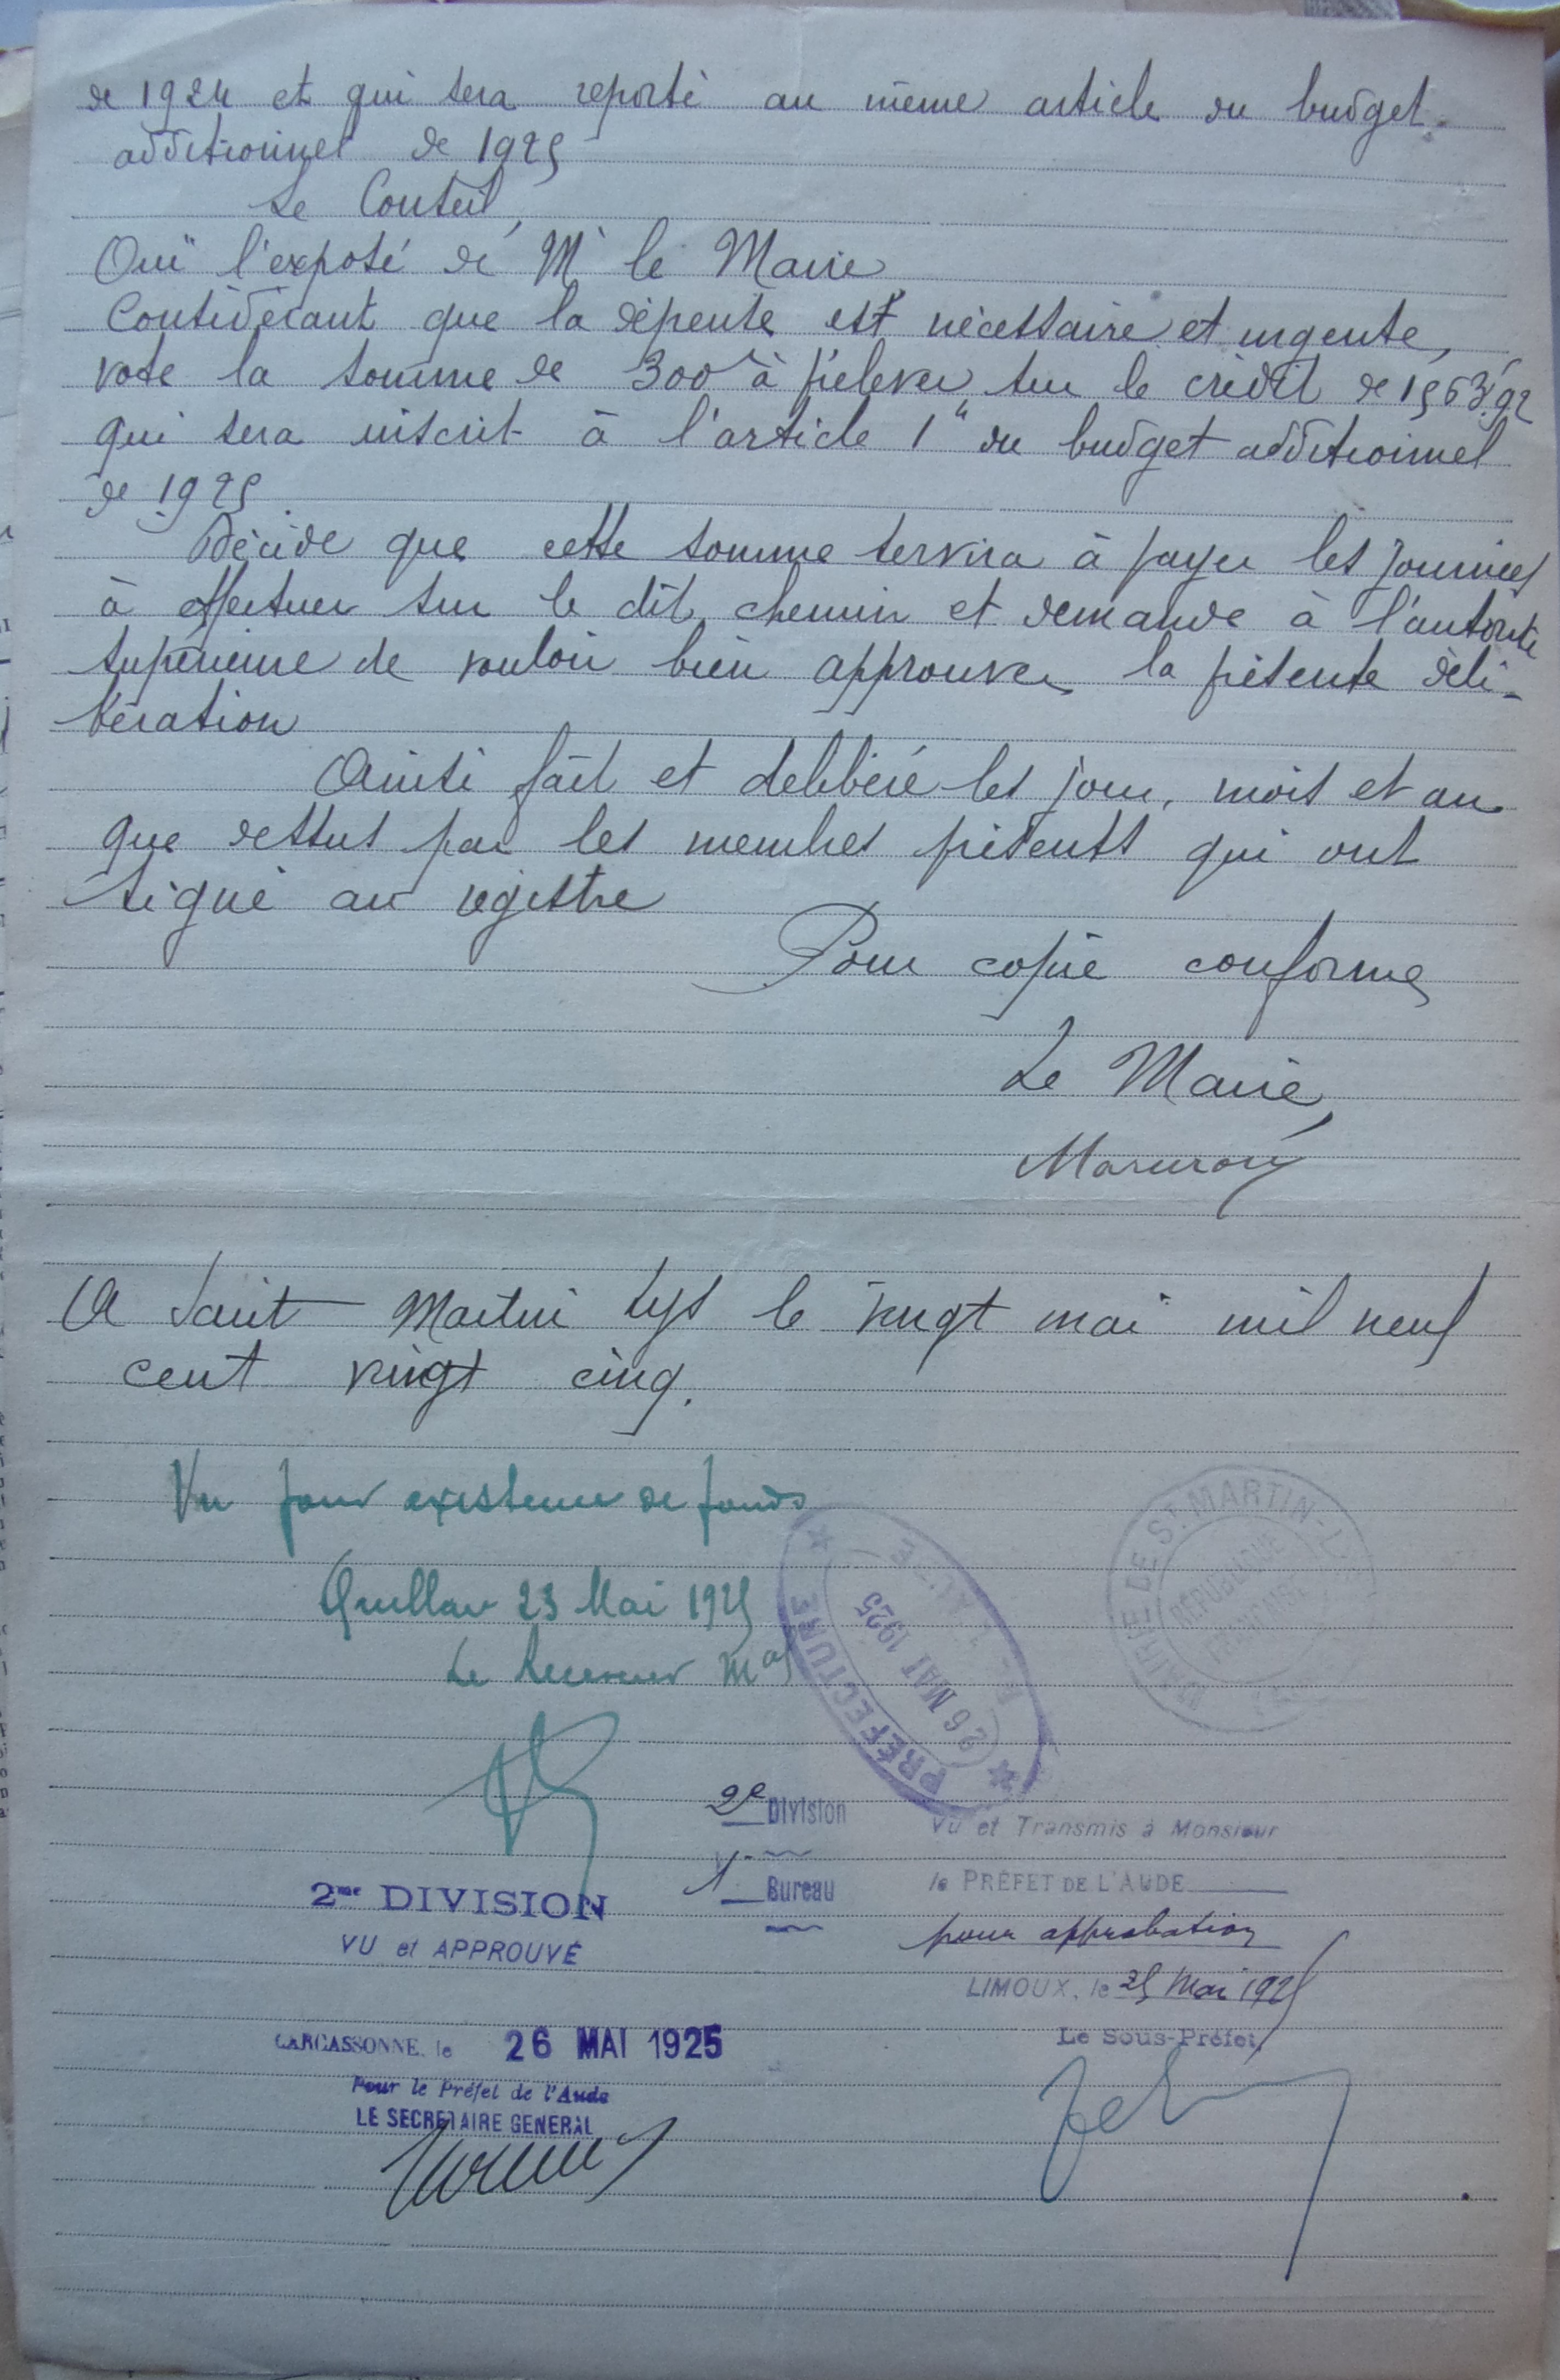 de 1924 et qui sera reporté au même article du budget
additionnel de 1925
Le Conseil,
Ouï l'exposé de Mr le Maire
Considérant que la dépense est nécessaire et urgente,
vote la somme de 300f à prélever sur le crédit de 1563f,92
qui sera inscrit à l'article 1er du budget additionnel
de 1925.
Décide que cette somme servira à payer les journées
à effectuer sur le dit chemin et demande à l'autorité
supérieure de vouloir bien approuver la présente déli-
bération
Ainsi fait et délibéré les jour, mois et an
que dessus par les membres présents qui ont
signé au registre
Pour copie conforme
Le Maire,
A Saint Martin Lys le vingt mai mil neuf
cent vingt cinq.
Vu pour existence de fonds
Quillan 23 Mai 1925
Le Receveur Mal
MAIRIE DE ST. MARTIN-L
RÉPUBLIQUE
FRANÇAISE
PRÉFECTURE DE L'AUDE
26 MAI 1925
2e Division
1 Bureau
Vu et Transmis à Monsieur
le PRÉFET DE L'AUDE
pour approbation
LIMOUX, le 25 Mai 1925
Le Sous-Préfet,
2me DIVISION
VU et APPROUVÉ
CARCASSONNE, le 26 MAI 1925
Pour le Préfet de l'Aude
LE SECRETAIRE GENERAL